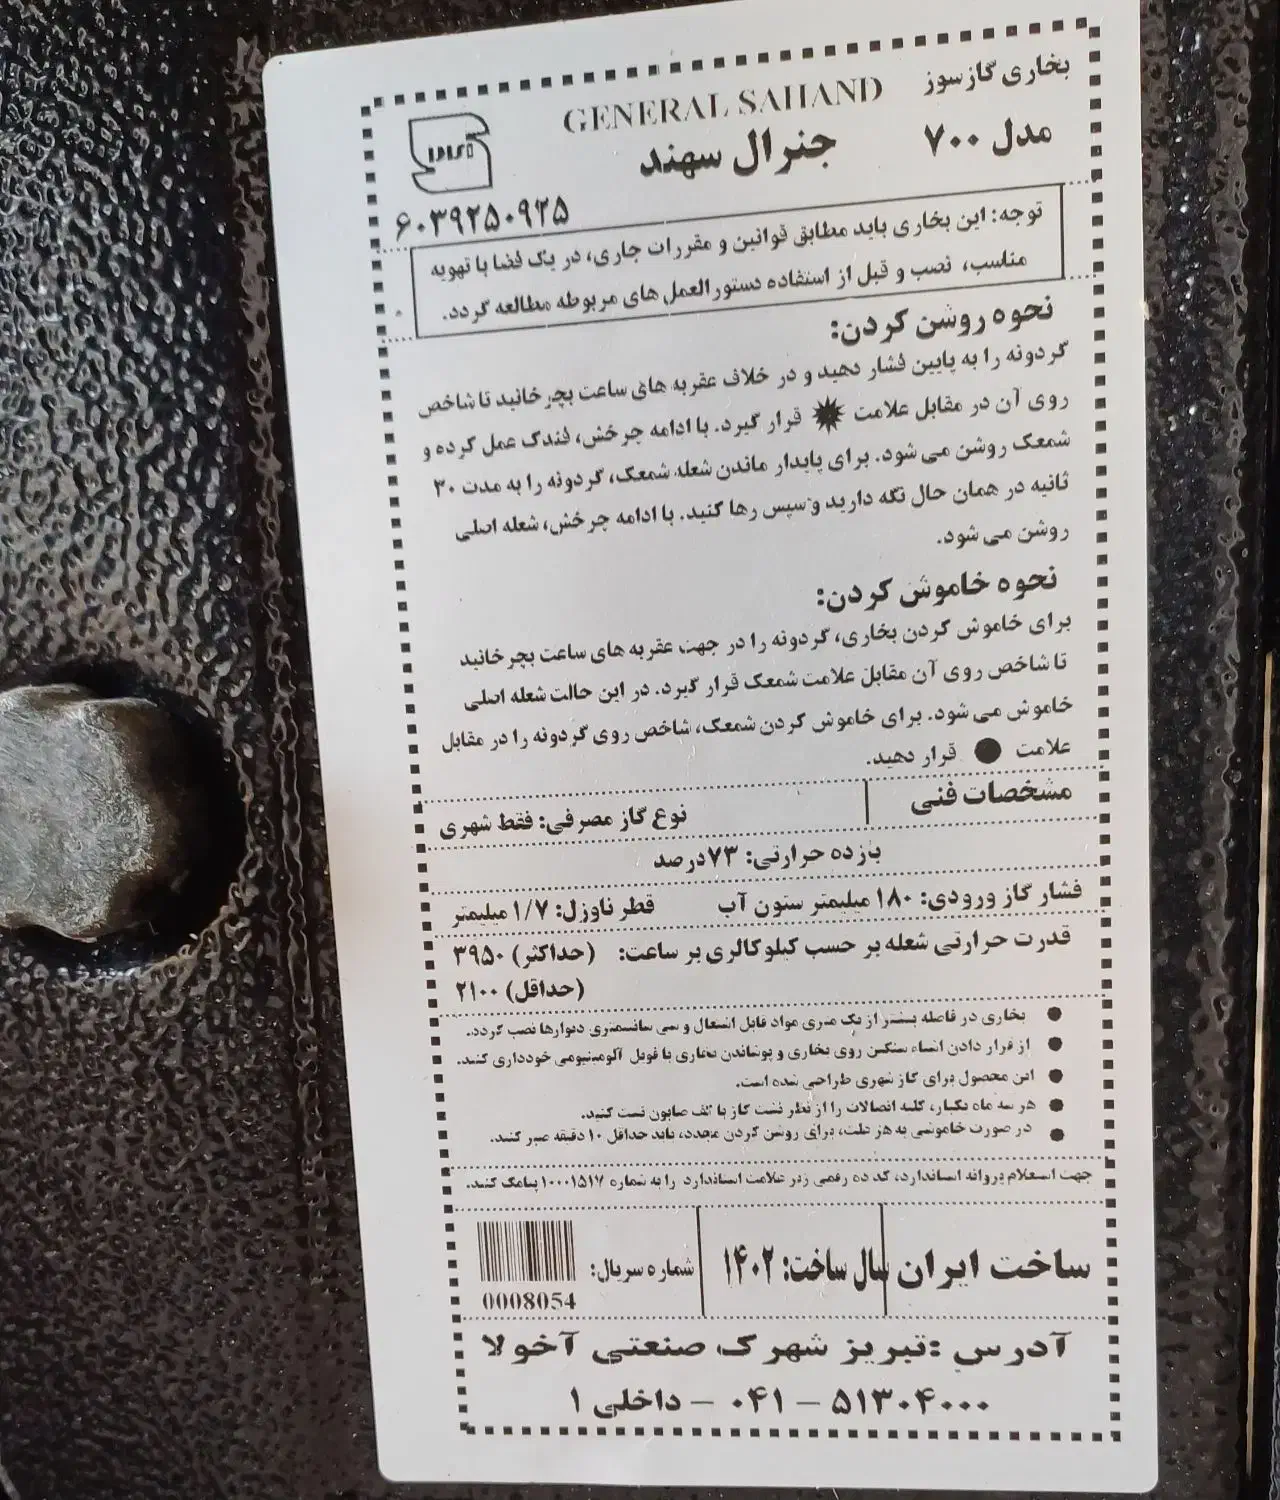 بخاری گازسوز
GENERAL SAHAND
مدل ۷۰۰
جنرال سهند
۶۰۳۹۲۵۰۹۲۵
توجه: این بخاری باید مطابق قوانین و مقررات جاری، در یک فضا با تهویه
مناسب، نصب و قبل از استفاده دستورالعمل های مربوطه مطالعه گردد.
نحوه روشن کردن:
گردونه را به پایین فشار دهید و در خلاف عقربه های ساعت بچرخانید تا شاخص
روی آن در مقابل علامت قرار گیرد. با ادامه چرخش، فندک عمل کرده و
شمعک روشن می شود. برای پایدار ماندن شعله شمعک، گردونه را به مدت ۳۰
ثانیه در همان حال نگه دارید و سپس رها کنید. با ادامه چرخش، شعله اصلی
روشن می شود.
نحوه خاموش کردن:
برای خاموش کردن بخاری، گردونه را در جهت عقربه های ساعت بچرخانید
تا شاخص روی آن مقابل علامت شمعک قرار گیرد. در این حالت شعله اصلی
خاموش می شود. برای خاموش کردن شمعک، شاخص روی گردونه را در مقابل
علامت ● قرار دهید.
مشخصات فنی
نوع گاز مصرفی: فقط شهری
بازده حرارتی: ۷۳درصد
فشار گاز ورودی: ۱۸۰ میلیمتر ستون آب
قطر ناوزل: ۱/۷ میلیمتر
قدرت حرارتی شعله بر حسب کیلوکالری بر ساعت: (حداکثر) ۳۹۵۰
(حداقل) ۲۱۰۰
● بخاری در فاصله بیشتر از یک متری مواد قابل اشتعال و سی سانتیمتری دیوارها نصب گردد.
● از قرار دادن اشیاء سنگین روی بخاری و پوشاندن بخاری با فویل آلومینیومی خودداری کنید.
● این محصول برای گاز شهری طراحی شده است.
● هر سه ماه یکبار، کلیه اتصالات را از نظر نشت گاز با کف صابون تست کنید.
● در صورت خاموشی به هر علت، برای روشن کردن مجدد، باید حداقل ۱۰ دقیقه صبر کنید.
جهت استعلام پروانه استاندارد، کد ده رقمی زیر علامت استاندارد را به شماره ۱۰۰۰۱۵۱۷ پیامک کنید.
ساخت ایران
سال ساخت: ۱۴۰۲
شماره سریال:
0008054
آدرس :تبریز شهرک صنعتی آخولا
۰۴۱ – ۵۱۳۰۴۰۰۰ – داخلی ۱